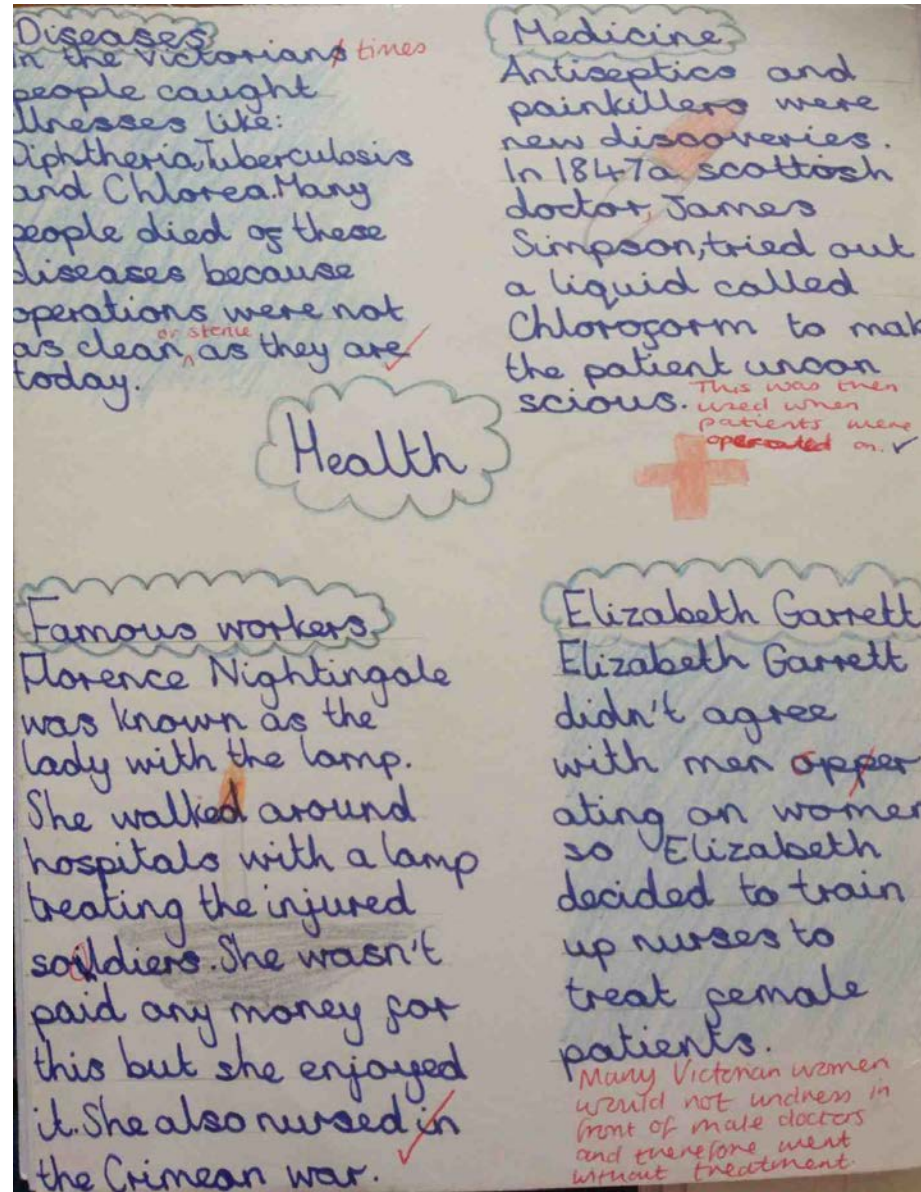 Diseases
In the Victorians times
people caught
illnesses like:
Diphtheria,Tuberculosis
and Chlorea.Many
people died of these
diseases because
operations were not
or sterile
as clean ^ as they are
today.
Medicine
Antiseptics and
painkillers were
new discoveries.
In 1847a scottosh
doctor, James
Simpson,tried out
a liquid called
Chloroform to mak
the patient uncon
scious.
This was then
used when
patients were
operated on.
Health
Famous workers
Florence Nightingale
was known as the
lady with the lamp.
She walked around
hospitals with a lamp
treating the injured
soldiers.She wasn't
paid any money for
this but she enjoyed
it.She also nursed in
the Crimean war.
Elizabeth Garrett
Elizabeth Garrett
didn't agree
with men opper
ating on women
so Elizabeth
decided to train
up nurses to
treat female
patients.
Many Victorian women
would not undress in
front of male doctors
and therefore went
without treatment.